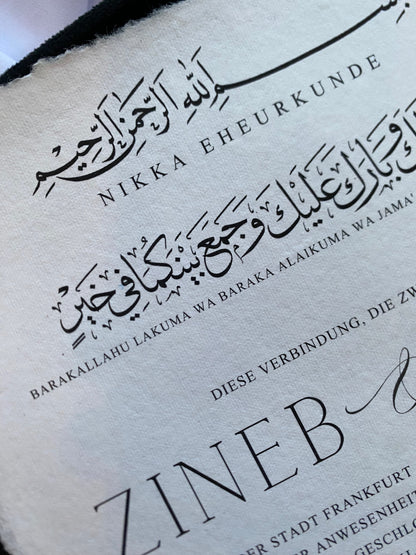 بِسْمِ اللهِ الرَّحْمٰنِ الرَّحِيْمِ
NIKKA EHEURKUNDE
وَبَارَكَ عَلَيْكَ وَجَمَعَ بَيْنَكُمَا فِي خَيْرٍ
BARAKALLAHU LAKUMA WA BARAKA ALAIKUMA WA JAMA'
DIESE VERBINDUNG, DIE
ZINEB
DER STADT FRANKFURT
ANWESENHEIT